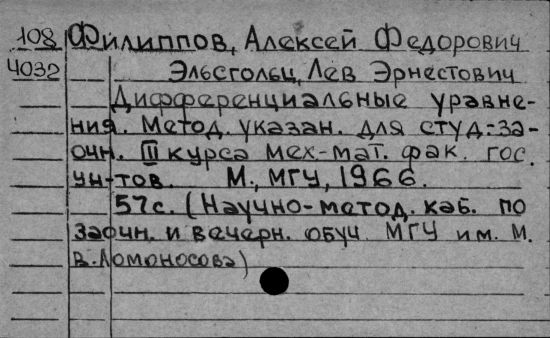 108 Филиппов, Алексей Федорович
4032 Эльсгольц, Лев Эрнестович
Дифференциальные уравне-
ния. Метод. указан. для студ.-за-
очн. III курса мех-мат. фак. гос.
ун-тов. М., МГУ, 1966.
57с. (Научно-метод. каб. по
заочн. и вечерн. обуч. МГУ им. М.
В. Ломоносова)